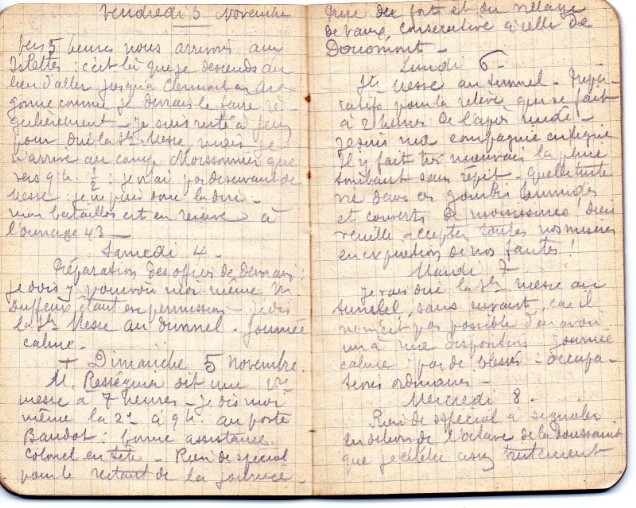 Vendredi 3 Novembre
Vers 5 heures nous arrivons aux
Islettes : c'est là que je descends au
lieu d'aller jusqu'à Clermont en Ar
gonne comme je devrais le faire ré
gulièrement - je suis resté à jeun
pour dire la Ste Messe mais je
n'arrive au camp Moissonnier que
vers 9 h ½ : je n'ai pas de servant de
Messe : je ne puis donc la dire -
mon bataillon est en réserve à
l'ouvrage 43 -
Samedi 4 -
Préparation des offices de demain :
je dois y pourvoir moi même M.
Duffeux étant en permission - je dis
la Ste Messe au tunnel - Journée
calme.
+ Dimanche 5 novembre.
M. Rességuier dit une 1re
messe à 7 heures - je dis moi
même la 2e à 9 h. au poste
Baudot : bonne assistance
Colonel en tête - Rien de spécial
pour le restant de la journée -
prise du fort et du village
de Vaux, consécutive à celle de
Douaumont -
Lundi 6 -
Ste Messe au tunnel - Prépa
ratifs pour la relève qui se fait
à 2 heures de l'après midi -
Je suis ma compagnie
Il y fait très mauvais la pluie
tombant sans répit - quelle triste
vie dans ces gourbis humides
et couverts de moisissures ! Dieu
veuille accepter toutes nos misères
en expiation de nos fautes !
Mardi 7
je vais dire la Ste Messe au
tunnel, sans servant, car il
n'est pas possible d'en avoir
un à ma disposition journée
calme : pas de blessés - occupa
tions ordinaires -
Mercredi 8 -
Rien de spécial à signaler
en dehors de l'octave de la Toussaint
que je célèbre assez tristement